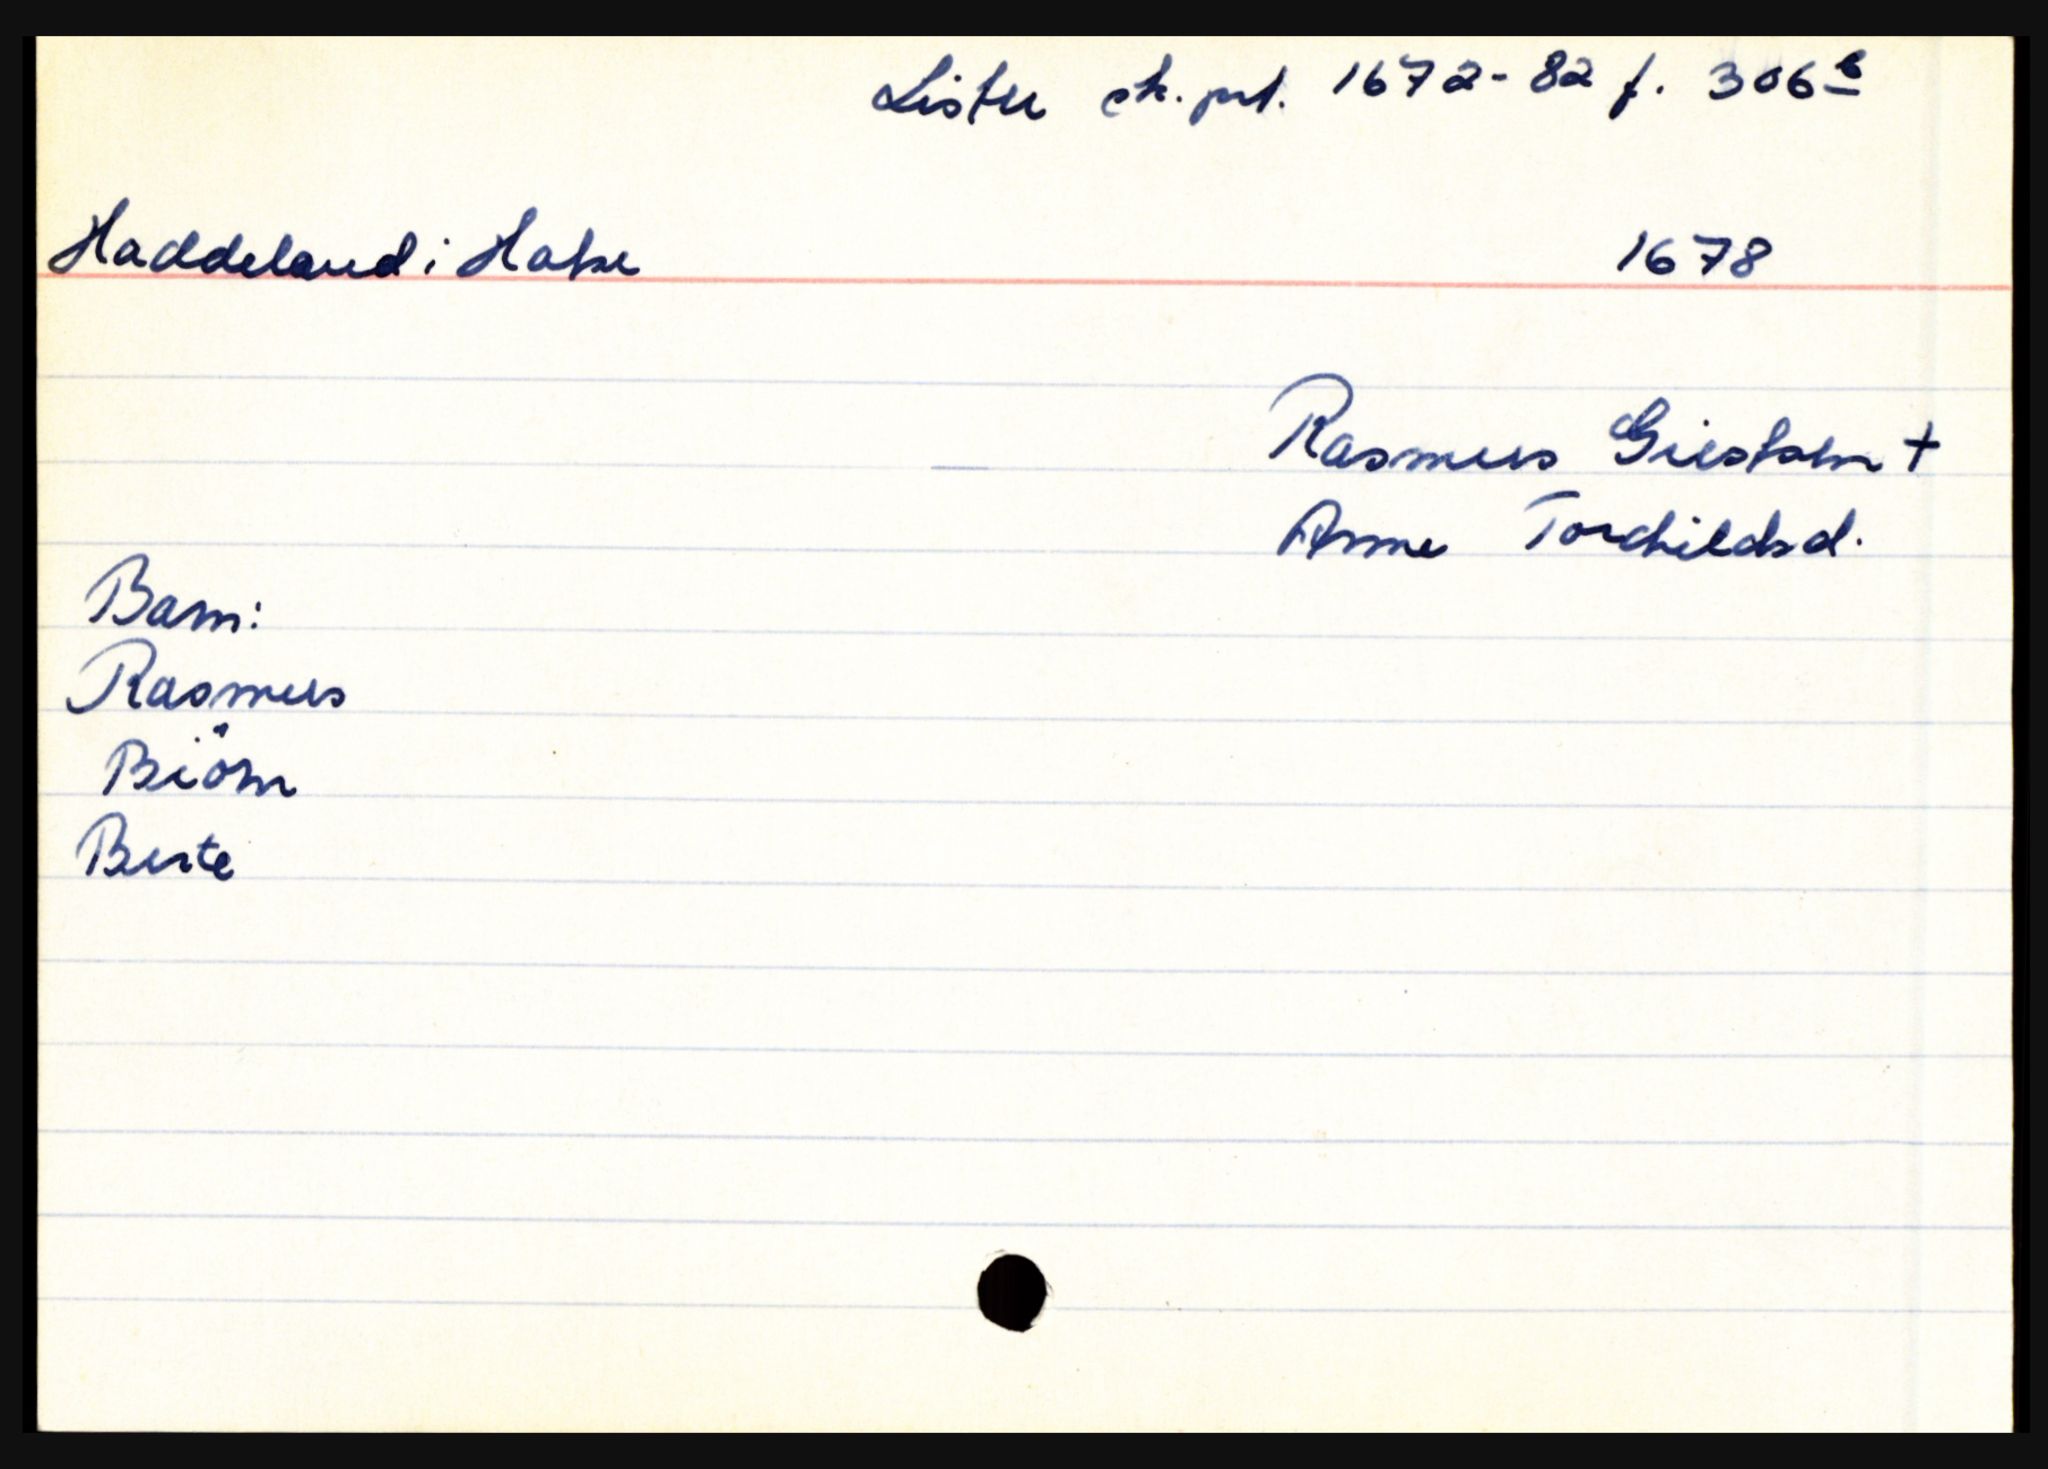 Lister sk. prt. 1672-82 f. 306b
Haddeland i Halse 1678
Rasmus Giestsen +
Anne Torchildsd.
Barn:
Rasmus
Biörn
Berte